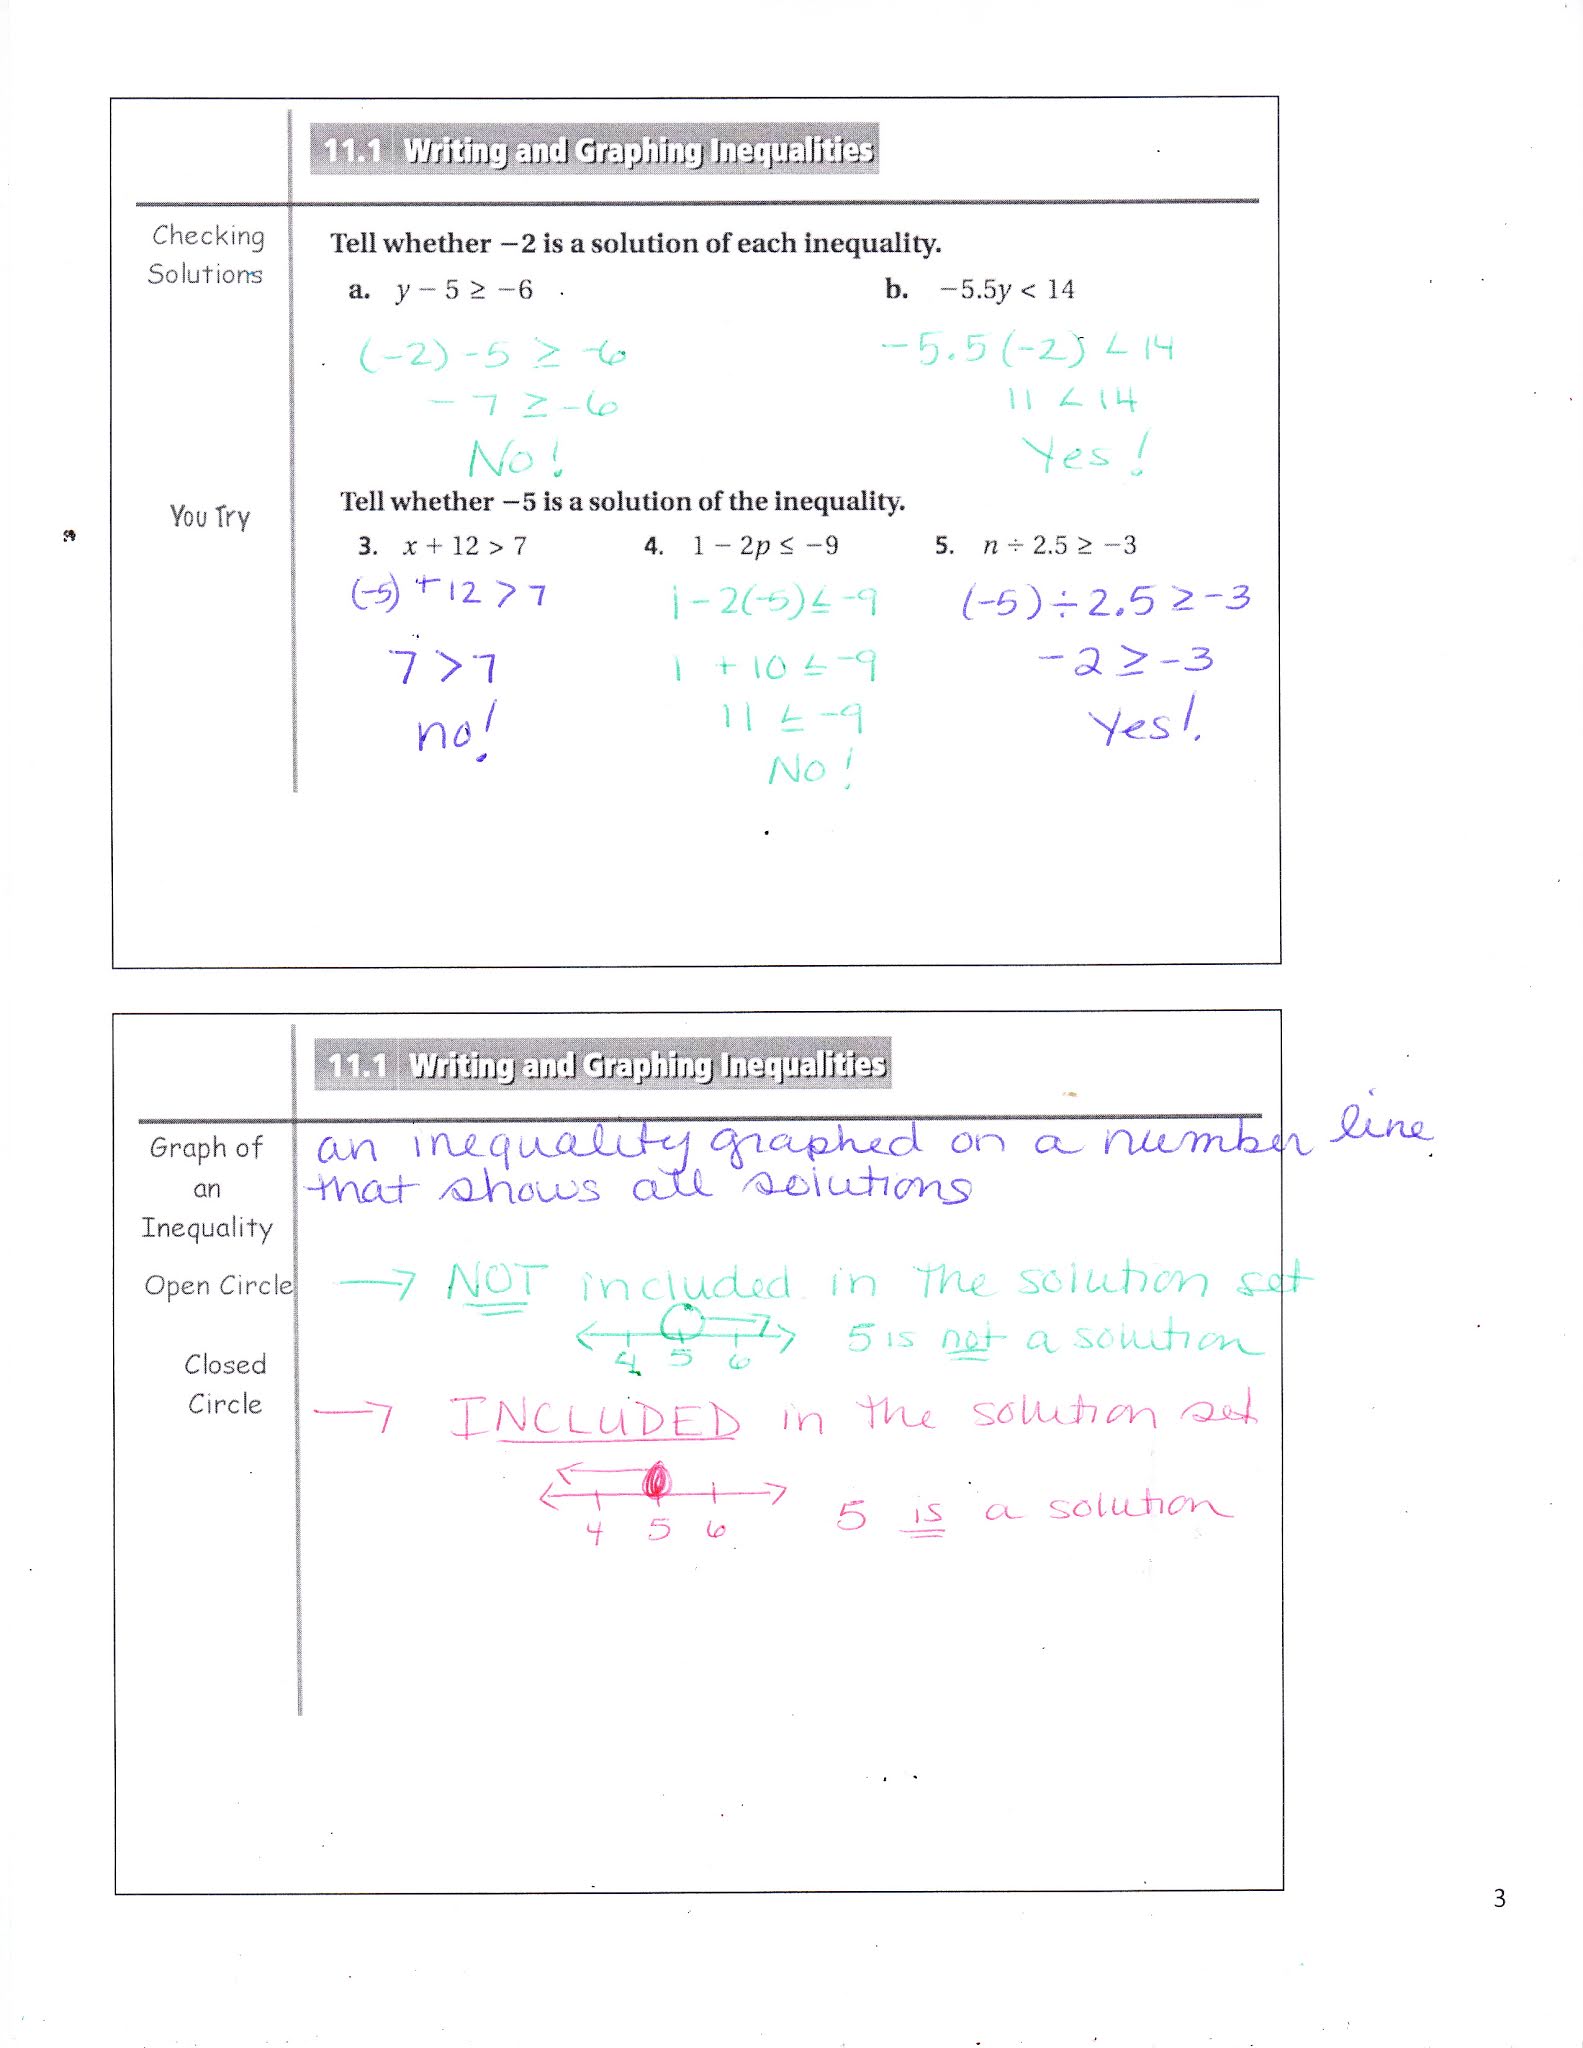 11.1 Writing and Graphing Inequalities
Checking
Solutions
Tell whether −2 is a solution of each inequality.
a. y − 5 ≥ −6
b. −5.5y < 14
(-2) -5 ≥ -6
-7 ≥ -6
No!
-5.5(-2) < 14
11 < 14
Yes!
You Try
Tell whether −5 is a solution of the inequality.
3. x + 12 > 7
4. 1 − 2p ≤ −9
5. n ÷ 2.5 ≥ −3
(-5) +12 > 7
7 > 7
no!
1 - 2(-5) ≤ -9
1 + 10 ≤ -9
11 ≤ -9
No!
(-5) ÷ 2.5 ≥ -3
-2 ≥ -3
Yes!
11.1 Writing and Graphing Inequalities
Graph of
an
Inequality
an inequality graphed on a number line
that shows all solutions
Open Circle
→ NOT included in the solution set
4 5 6
5 is not a solution
Closed
Circle
→ INCLUDED in the solution set
4 5 6
5 is a solution
3